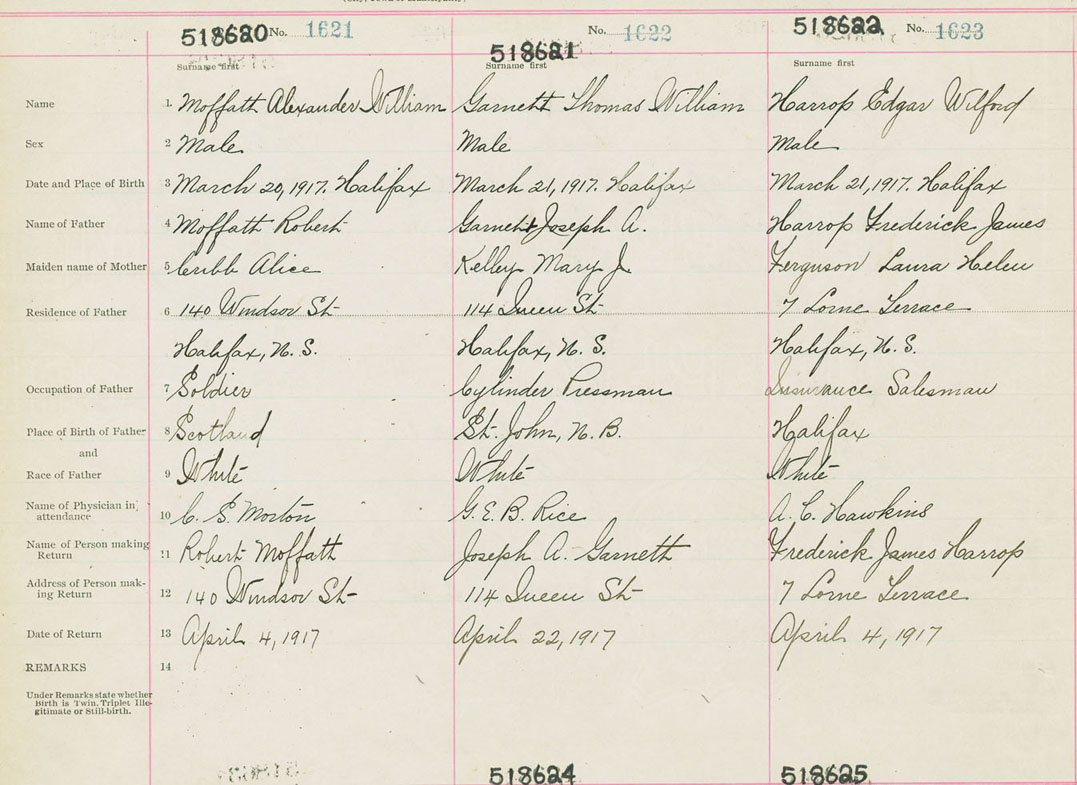 518620 No. 1621
518621 No. 1622
518622 No. 1623
Surname first Surname first Surname first
Name 1. Moffatt Alexander William Garnett Thomas William Harrop Edgar Wilford
Sex 2 Male Male Male
Date and Place of Birth 3 March 20, 1917. Halifax March 21, 1917. Halifax March 21, 1917. Halifax
Name of Father 4 Moffatt Robert Garnett Joseph A. Harrop Frederick James
Maiden name of Mother 5 Cribb Alice Kelley Mary J. Ferguson Laura Helen
Residence of Father 6 140 Windsor St 114 Queen St 7 Lorne Terrace
Halifax, N.S. Halifax, N.S. Halifax, N.S.
Occupation of Father 7 Soldier Cylinder Pressman Insurance Salesman
Place of Birth of Father 8 Scotland St. John, N.B. Halifax
and
Race of Father 9 White White White
Name of Physician in attendance 10 C. S. Morton G. E. B. Rice A. C. Hawkins
Name of Person making Return 11 Robert Moffatt Joseph A. Garnett Frederick James Harrop
Address of Person mak-ing Return 12 140 Windsor St 114 Queen St 7 Lorne Terrace
Date of Return 13 April 4, 1917 April 22, 1917 April 4, 1917
REMARKS 14
Under Remarks state whether
Birth is Twin. Triplet Ille-
gitimate or Still-birth.
518624 518625